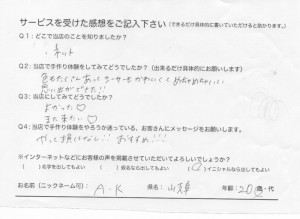 サービスを受けた感想をご記入下さい（できるだけ具体的に書いていただけると助かります。）
Q1：どこで当店のことを知りましたか？
・ネット
Q2：当店で手作り体験をしてみてどうでしたか？（出来るだけ具体的にお願いします）
色もたくさんあって
かわいくて めちゃめちゃいい
思い出ができた!!
Q3：当店にしてみてどうでしたか？
よかった♡
また来たい♡
Q4：当店で手作り体験をやろうか迷っている、お客さんにメッセージをお願いします。
やって損はなし!! おすすめ!!!
※インターネットなどにお客様の声を掲載させていただいてよろしいでしょうか？
（ ）名字を出してもよい （ ）仮名なら出してもよい （○）イニシャルなら出してもよい
お名前（ニックネーム可）： A・K 県名： 山梨 年齢： 20 歳・代